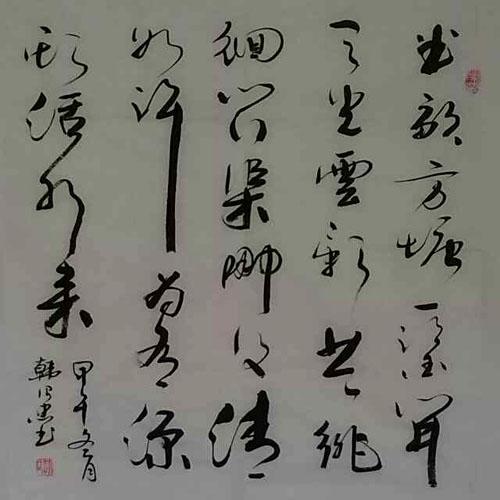 半畝方塘一鑒開
天光雲影共徘
徊問渠那得清
如許為有源
頭活水來
甲午月
韓忠書